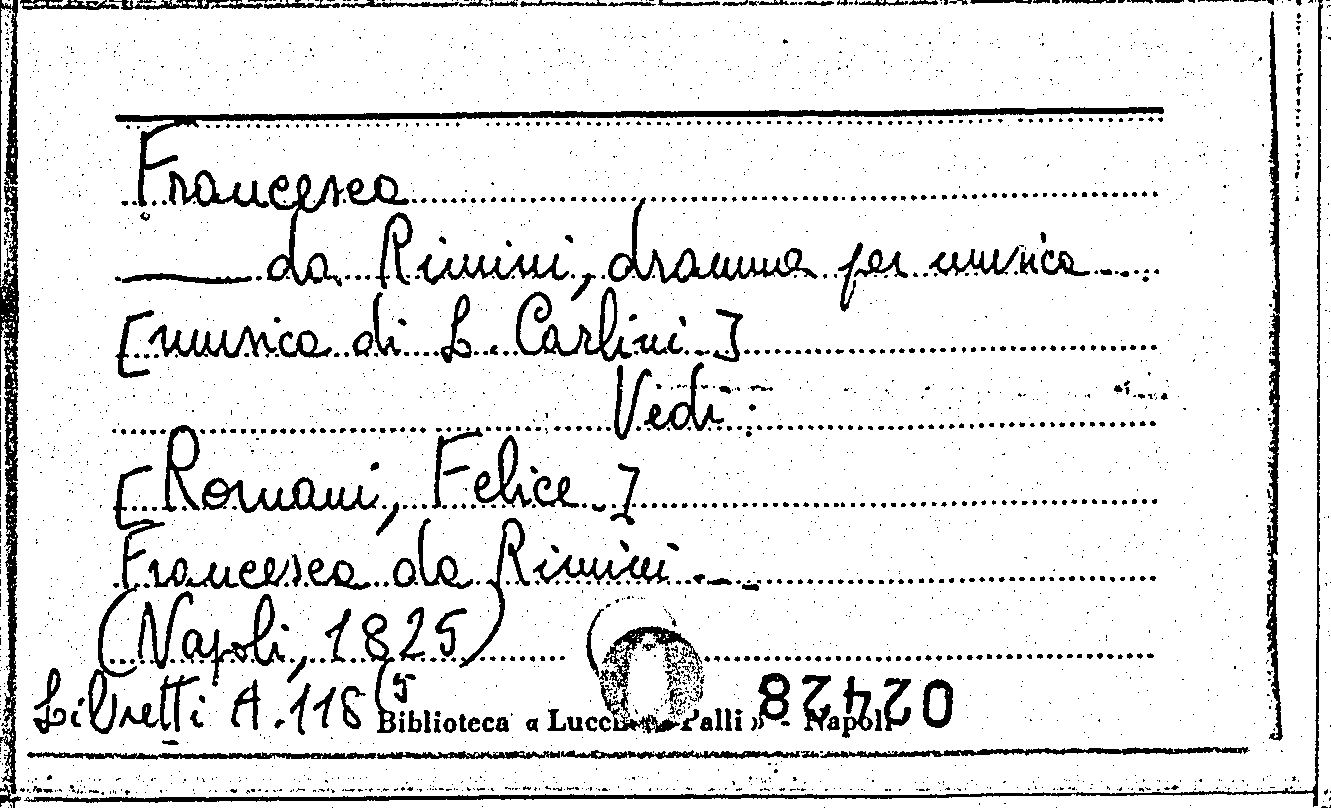 Francesca
—— da Rimini, dramma per musica ...
[musica di L. Carlini.]
Vedi:
[Romani, Felice.]
Francesca da Rimini...
(Napoli, 1825)
Libretti A.116(5
Biblioteca « Lucchesi Palli » - Napoli
02428